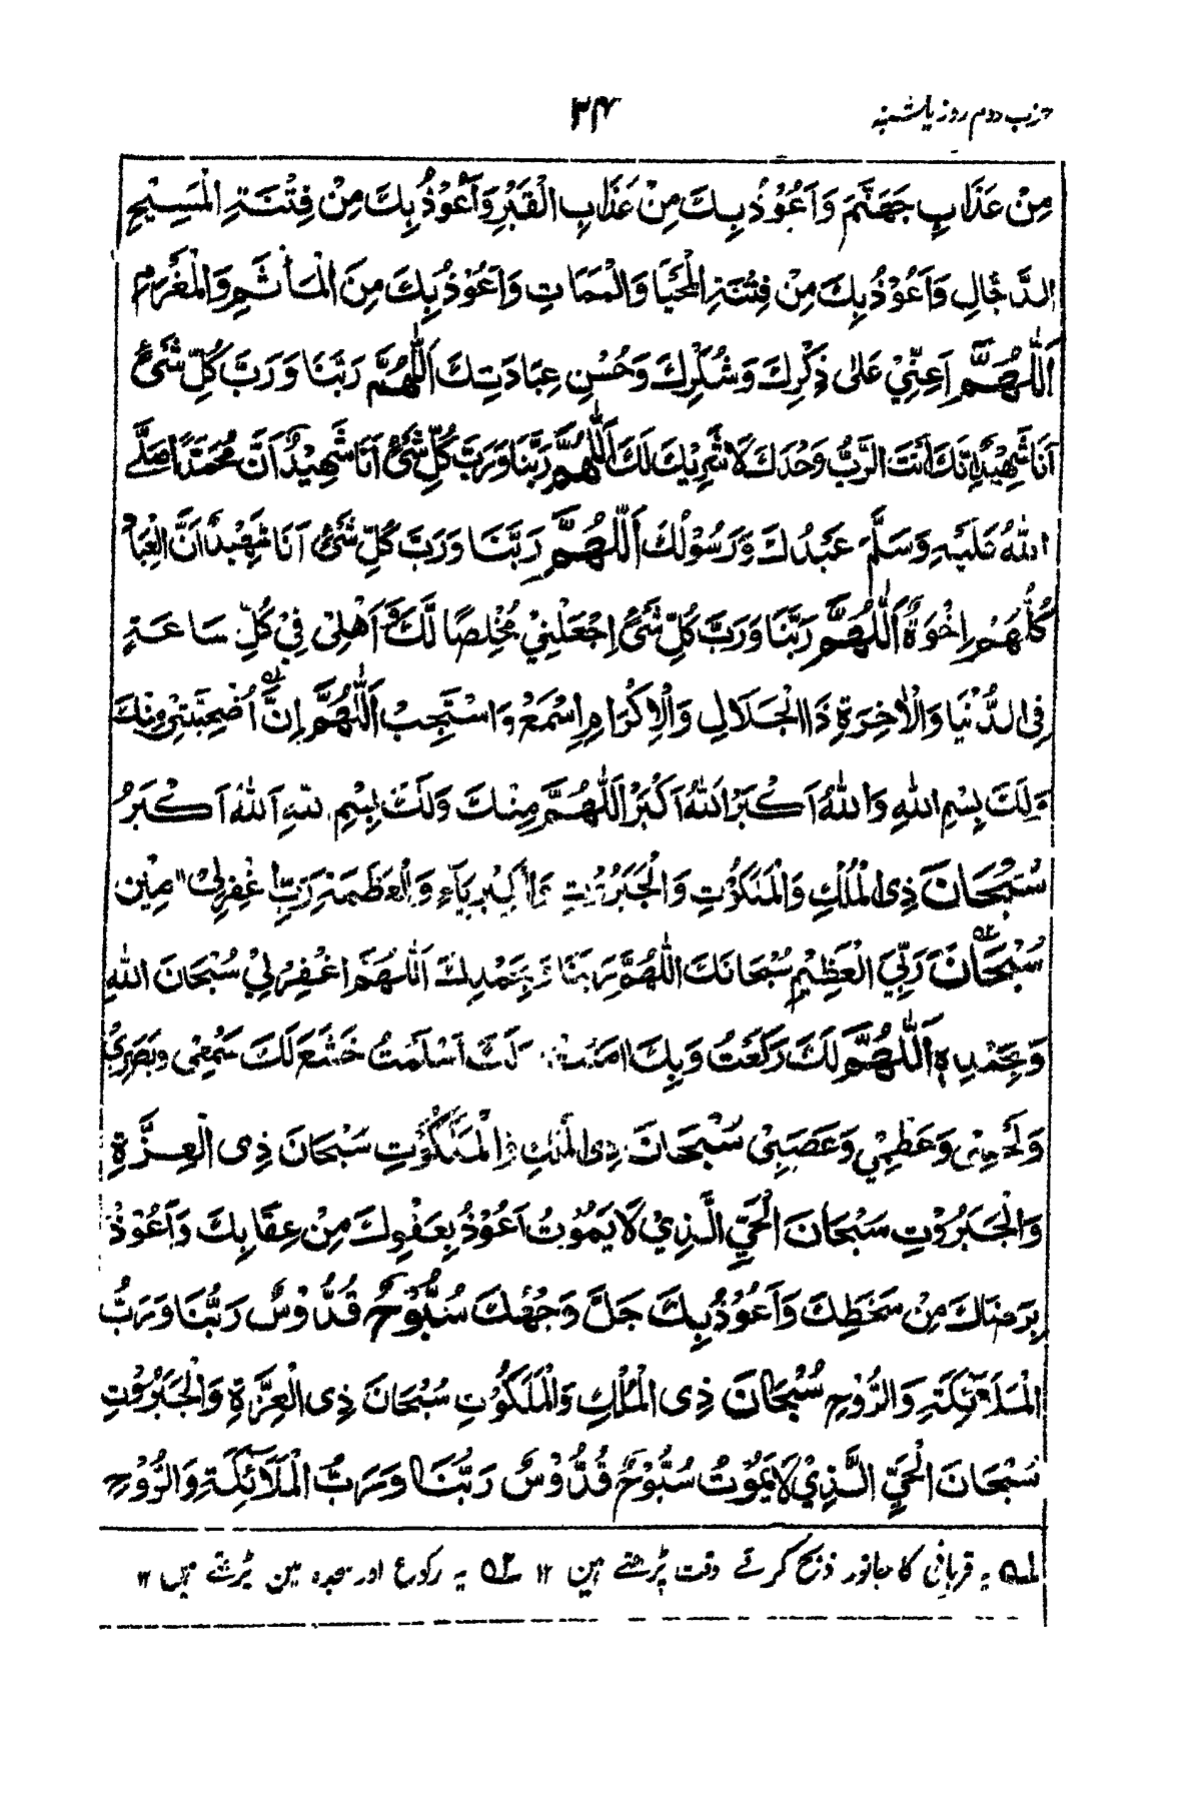 حزب دوم روز یکشنبہ
۳۴
مِنْ عَذَابِ جَهَنَّمَ وَاَعُوْذُ بِكَ مِنْ عَذَابِ الْقَبْرِ وَاَعُوْذُ بِكَ مِنْ فِتْنَةِ الْمَسِيْحِ
الدَّجَّالِ وَاَعُوْذُ بِكَ مِنْ فِتْنَةِ الْمَحْيَا وَالْمَمَاتِ وَاَعُوْذُ بِكَ مِنَ الْمَأْثَمِ وَالْمَغْرَمِ
اَللّٰهُمَّ اَعِنِّيْ عَلٰى ذِكْرِكَ وَشُكْرِكَ وَحُسْنِ عِبَادَتِكَ اَللّٰهُمَّ رَبَّنَا وَرَبَّ كُلِّ شَیْءٍ
اَنَا شَهِيْدٌ اِنَّكَ اَنْتَ الرَّبُّ وَحْدَكَ لَا شَرِيْكَ لَكَ اَللّٰهُمَّ رَبَّنَا وَرَبَّ كُلِّ شَیْءٍ اَنَا شَهِيْدٌ اَنَّ مُحَمَّدًا صَلَّے
اللّٰهُ عَلَيْهِ وَسَلَّمَ عَبْدُكَ وَرَسُوْلُكَ اَللّٰهُمَّ رَبَّنَا وَرَبَّ كُلِّ شَیْءٍ اَنَا شَهِيْدٌ اَنَّ الْعِبَادَ
كُلَّهُمْ اِخْوَةٌ اَللّٰهُمَّ رَبَّنَا وَرَبَّ كُلِّ شَیْءٍ اِجْعَلْنِيْ مُخْلِصًا لَّكَ وَ اَهْلِیْ فِيْ كُلِّ سَاعَةٍ
فِی الدُّنْيَا وَالْاٰخِرَةِ ذَا الْجَلَالِ وَالْاِكْرَامِ اِسْمَعْ وَاسْتَجِبْ اَللّٰهُمَّ اِنَّ اُضْحِيَّتِيْ مِنْكَ
وَلَكَ بِسْمِ اللّٰهِ وَاللّٰهُ اَكْبَرْ اَللّٰهُ اَكْبَرْ اَللّٰهُمَّ مِنْكَ وَلَكَ بِسْمِ للّٰهِ اَللّٰهُ اَكْبَرُ
سُبْحَانَ ذِی الْمُلْكِ وَالْمَلَكُوْتِ وَالْجَبَرُوْتِ وَالْكِبْرِيَآءِ وَالْعَظَمَةِ رَبِّ اغْفِرْلِیْ
سُبْحَانَ رَبِّيَ الْعَظِيْمِ سُبْحَانَكَ اللّٰهُمَّ رَبَّنَا وَبِحَمْدِكَ اَللّٰهُمَّ اغْفِرْ لِيْ سُبْحَانَ اللّٰهِ
وَبِحَمْدِهٖ اَللّٰهُمَّ لَكَ رَكَعْتُ وَبِكَ اٰمَنْتُ وَلَكَ اَسْلَمْتُ خَشَعَ لَكَ سَمْعِیْ وَبَصَرِیْ
وَلَحْمِیْ وَعَظْمِيْ وَعَصَبِیْ سُبْحَانَ ذِی الْمُلْكِ وَالْمَلَكُوْتِ سُبْحَانَ ذِی الْعِزَّةِ
وَالْجَبَرُوْتِ سُبْحَانَ الْحَيِّ الَّذِيْ لَا يَمُوْتُ اَعُوْذُ بِعَفْوِكَ مِنْ عِقَابِكَ وَاَعُوْذُ
بِرَضَاكَ مِنْ سَخَطِكَ وَاَعُوْذُ بِكَ جَلَّ وَجْهُكَ سُبُّوْحٌ قُدُّوْسٌ رَبُّنَا وَرَبُّ
الْمَلَآئِكَةِ وَالرُّوْحِ سُبْحَانَ ذِی الْمُلْكِ وَالْمَلَكُوْتِ سُبْحَانَ ذِی الْعِزَّةِ وَالْجَبَرُوْتِ
سُبْحَانَ الْحَيِّ الَّذِيْ لَا يَمُوْتُ سُبُّوْحٌ قُدُّوْسٌ رَبُّنَا وَرَبُّ الْمَلَآئِكَةِ وَالرُّوْحِ
لـه یہ قربانی کا جانور ذبح کرتے وقت پڑھتے ہین ۱۲ ۲ـه یہ رکوع اور سجدہ مین پڑھتے ہین ۱۲